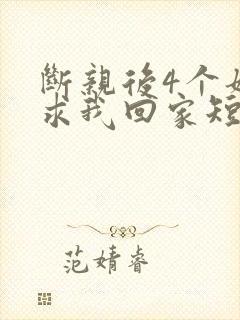 斷親後4个
求我回家短
范婧睿